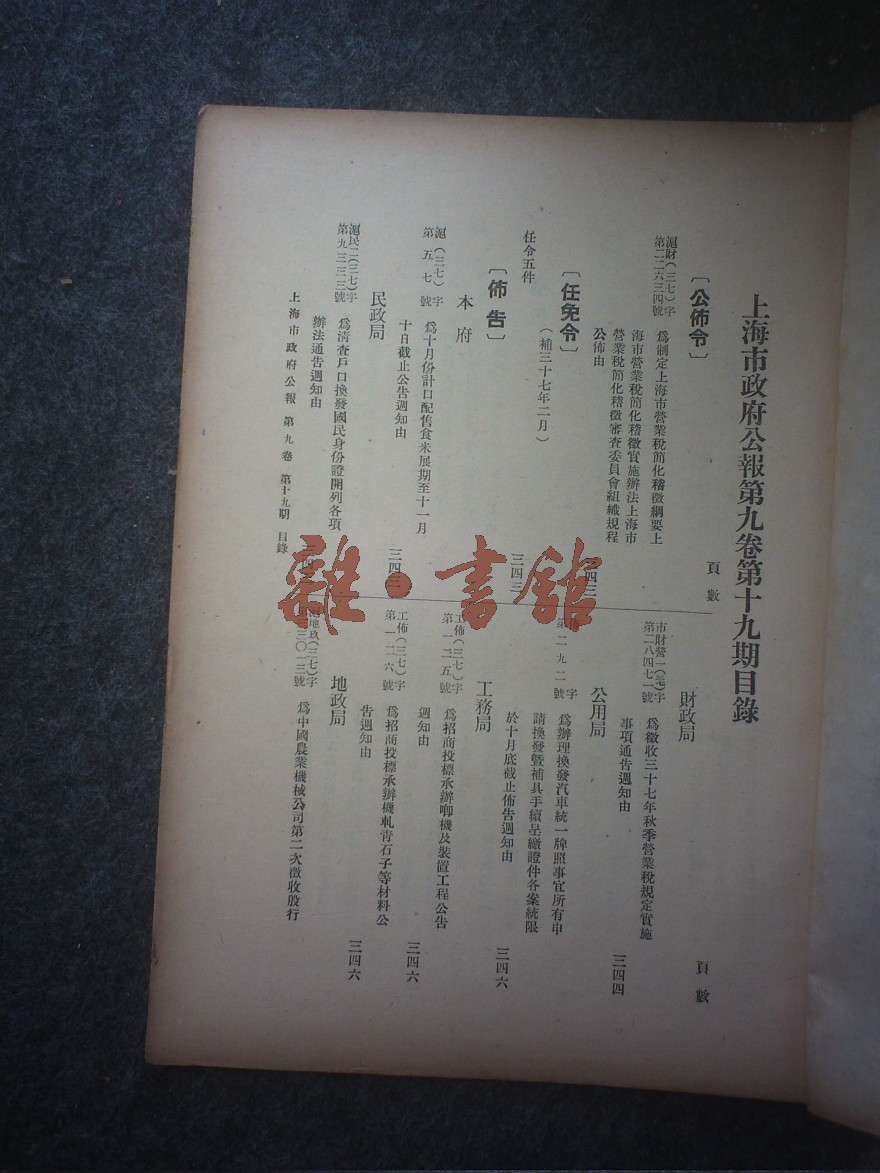 上海市政府公報第九卷第十九期目錄
頁數
〔公佈令〕
滬財(三七)字
第二二六三四號
為制定上海市營業稅簡化稽徵綱要上
海市營業稅簡化稽徵實施辦法上海市
營業稅簡化稽徵審查委員會組織規程
公佈由
〔任免令〕
(補三十七年二月)
任令五件
三四三
〔佈告〕
本府
滬(三七)字
第五七號
為十月份計口配售食米展期至十一月
十日截止公告週知由
三四三
民政局
滬民二(三七)字
第九三三三號
為清查戶口換發國民身份證開列各項
辦法通告週知由
頁數
財政局
市財營一(三七)字
第二八四七一號
為徵收三十七年秋季營業稅規定實施
事項通告週知由
三四四
公用局
字
第二九二號
為辦理換發汽車統一牌照事宜所有申
請換發暨補具手續呈繳證件各案統限
於十月底截止佈告週知由
三四六
工務局
工佈(三七)字
第一二五號
為招商投標承辦啣機及裝置工程公告
週知由
三四六
工佈(三七)字
第一二六號
為招商投標承辦機軋青石子等材料公
告週知由
三四六
地政局
滬地玖(三七)字
三〇一三號
為中國農業機械公司第二次徵收股行
上海市政府公報 第九卷 第十九期 目錄
雜·書館